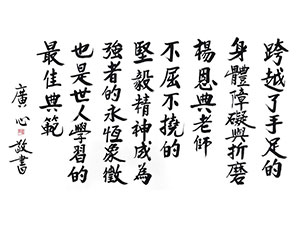 跨越了手足的
身體障礙與折磨
楊恩典老师
不屈不撓的
堅毅精神成為
強者的永恆象徵
也是世人學習的
最佳典範
廣心敬書